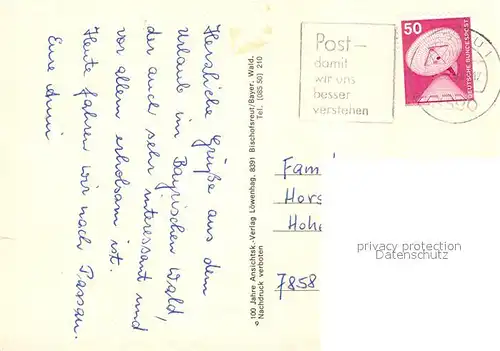 Herzliche Grüße aus dem
Urlaub im Bayrischen Wald,
der auch sehr interessant und
vor allem erholsam ist.
Heute fahren wir nach Passau.
Eure Anni
© 100 Jahre Ansichtsk.-Verlag Löwenhag, 8391 Bischofsreut/Bayer. Wald,
Tel. (085 50) 210
Nachdruck verboten
Post –
damit
wir uns
besser
verstehen
50
DEUTSCHE BUNDESPOST
Fam
Hors
Hohe
7858
privacy protection
Datenschutz